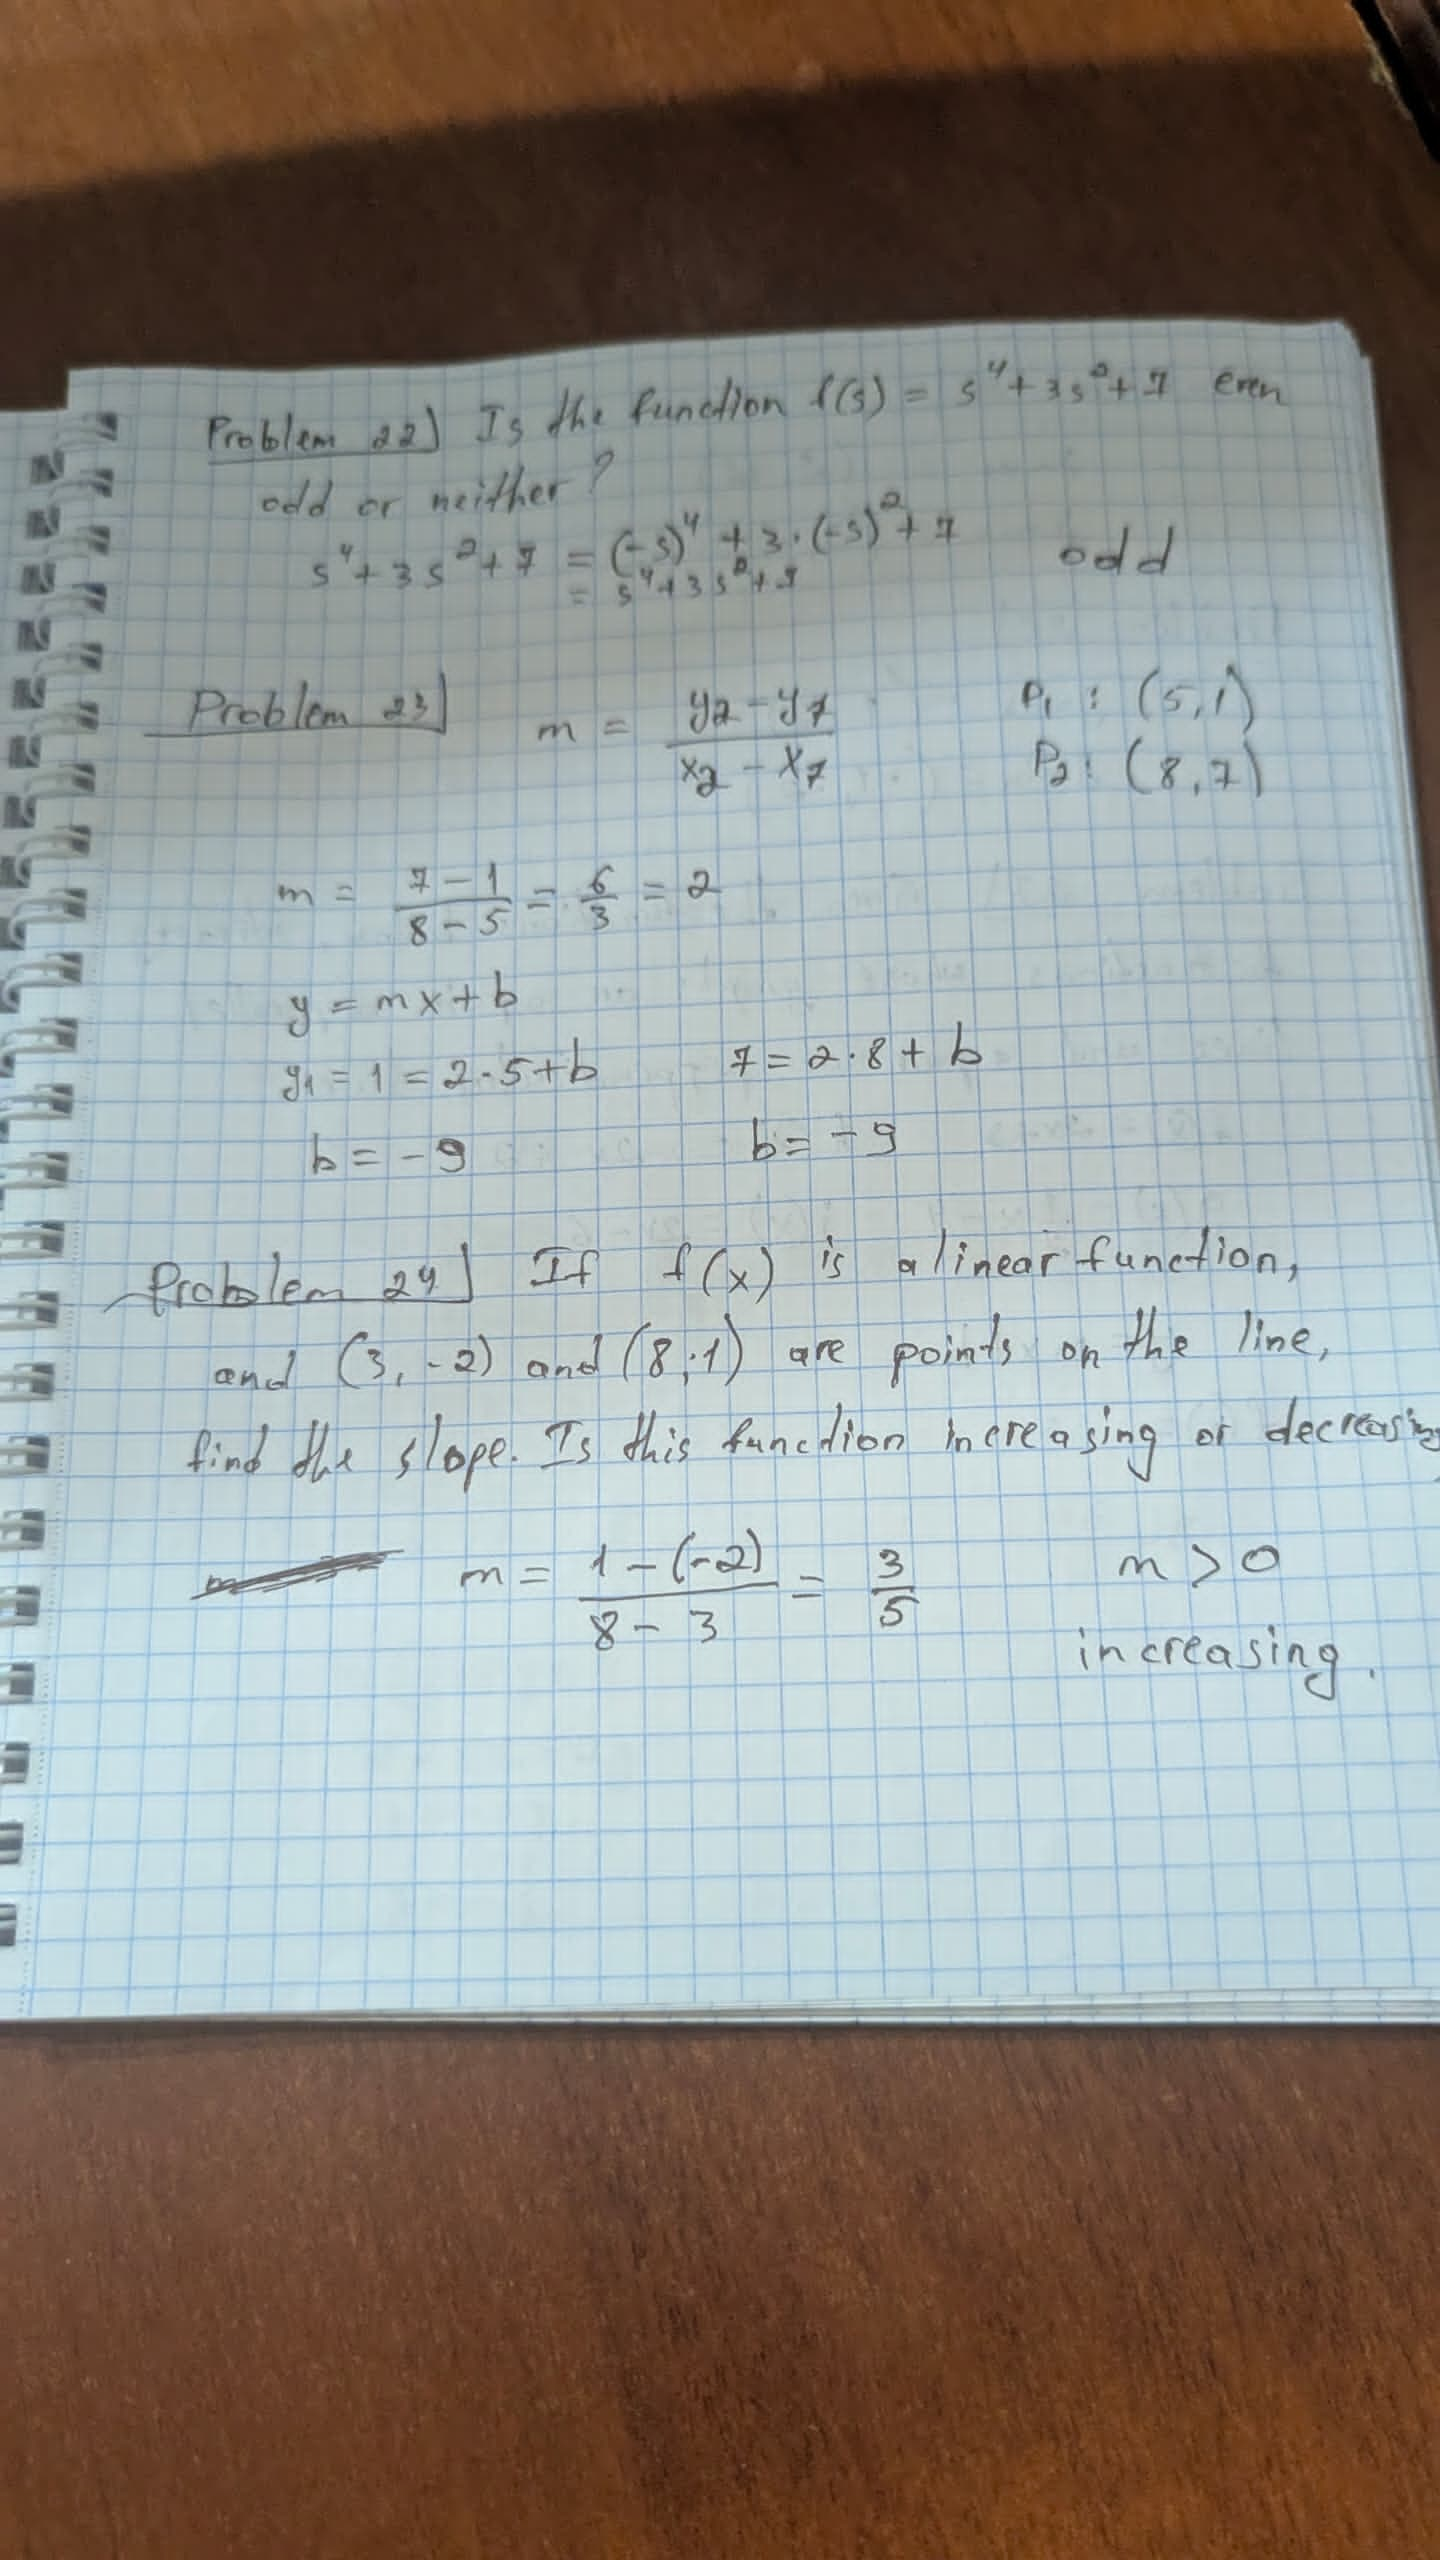 Problem 22) Is the function f(s) = s⁴ + 3s² + 7 even
odd or neither?
s⁴ + 3s² + 7 = (-s)⁴ + 3·(-s)² + 7 odd
= s⁴ + 3s² + 7
Problem 23) m = (y₂ - y₁)/(x₂ - x₁) P₁ : (5,1)
P₂ : (8,7)
m = (7 - 1)/(8 - 5) = 6/3 = 2
y = mx + b
y₁ = 1 = 2·5 + b 7 = 2·8 + b
b = -9 b = -9
Problem 24) If f(x) is a linear function,
and (3, -2) and (8, 1) are points on the line,
find the slope. Is this function increasing or decreasing
m = (1 - (-2))/(8 - 3) = 3/5 m > 0
increasing.